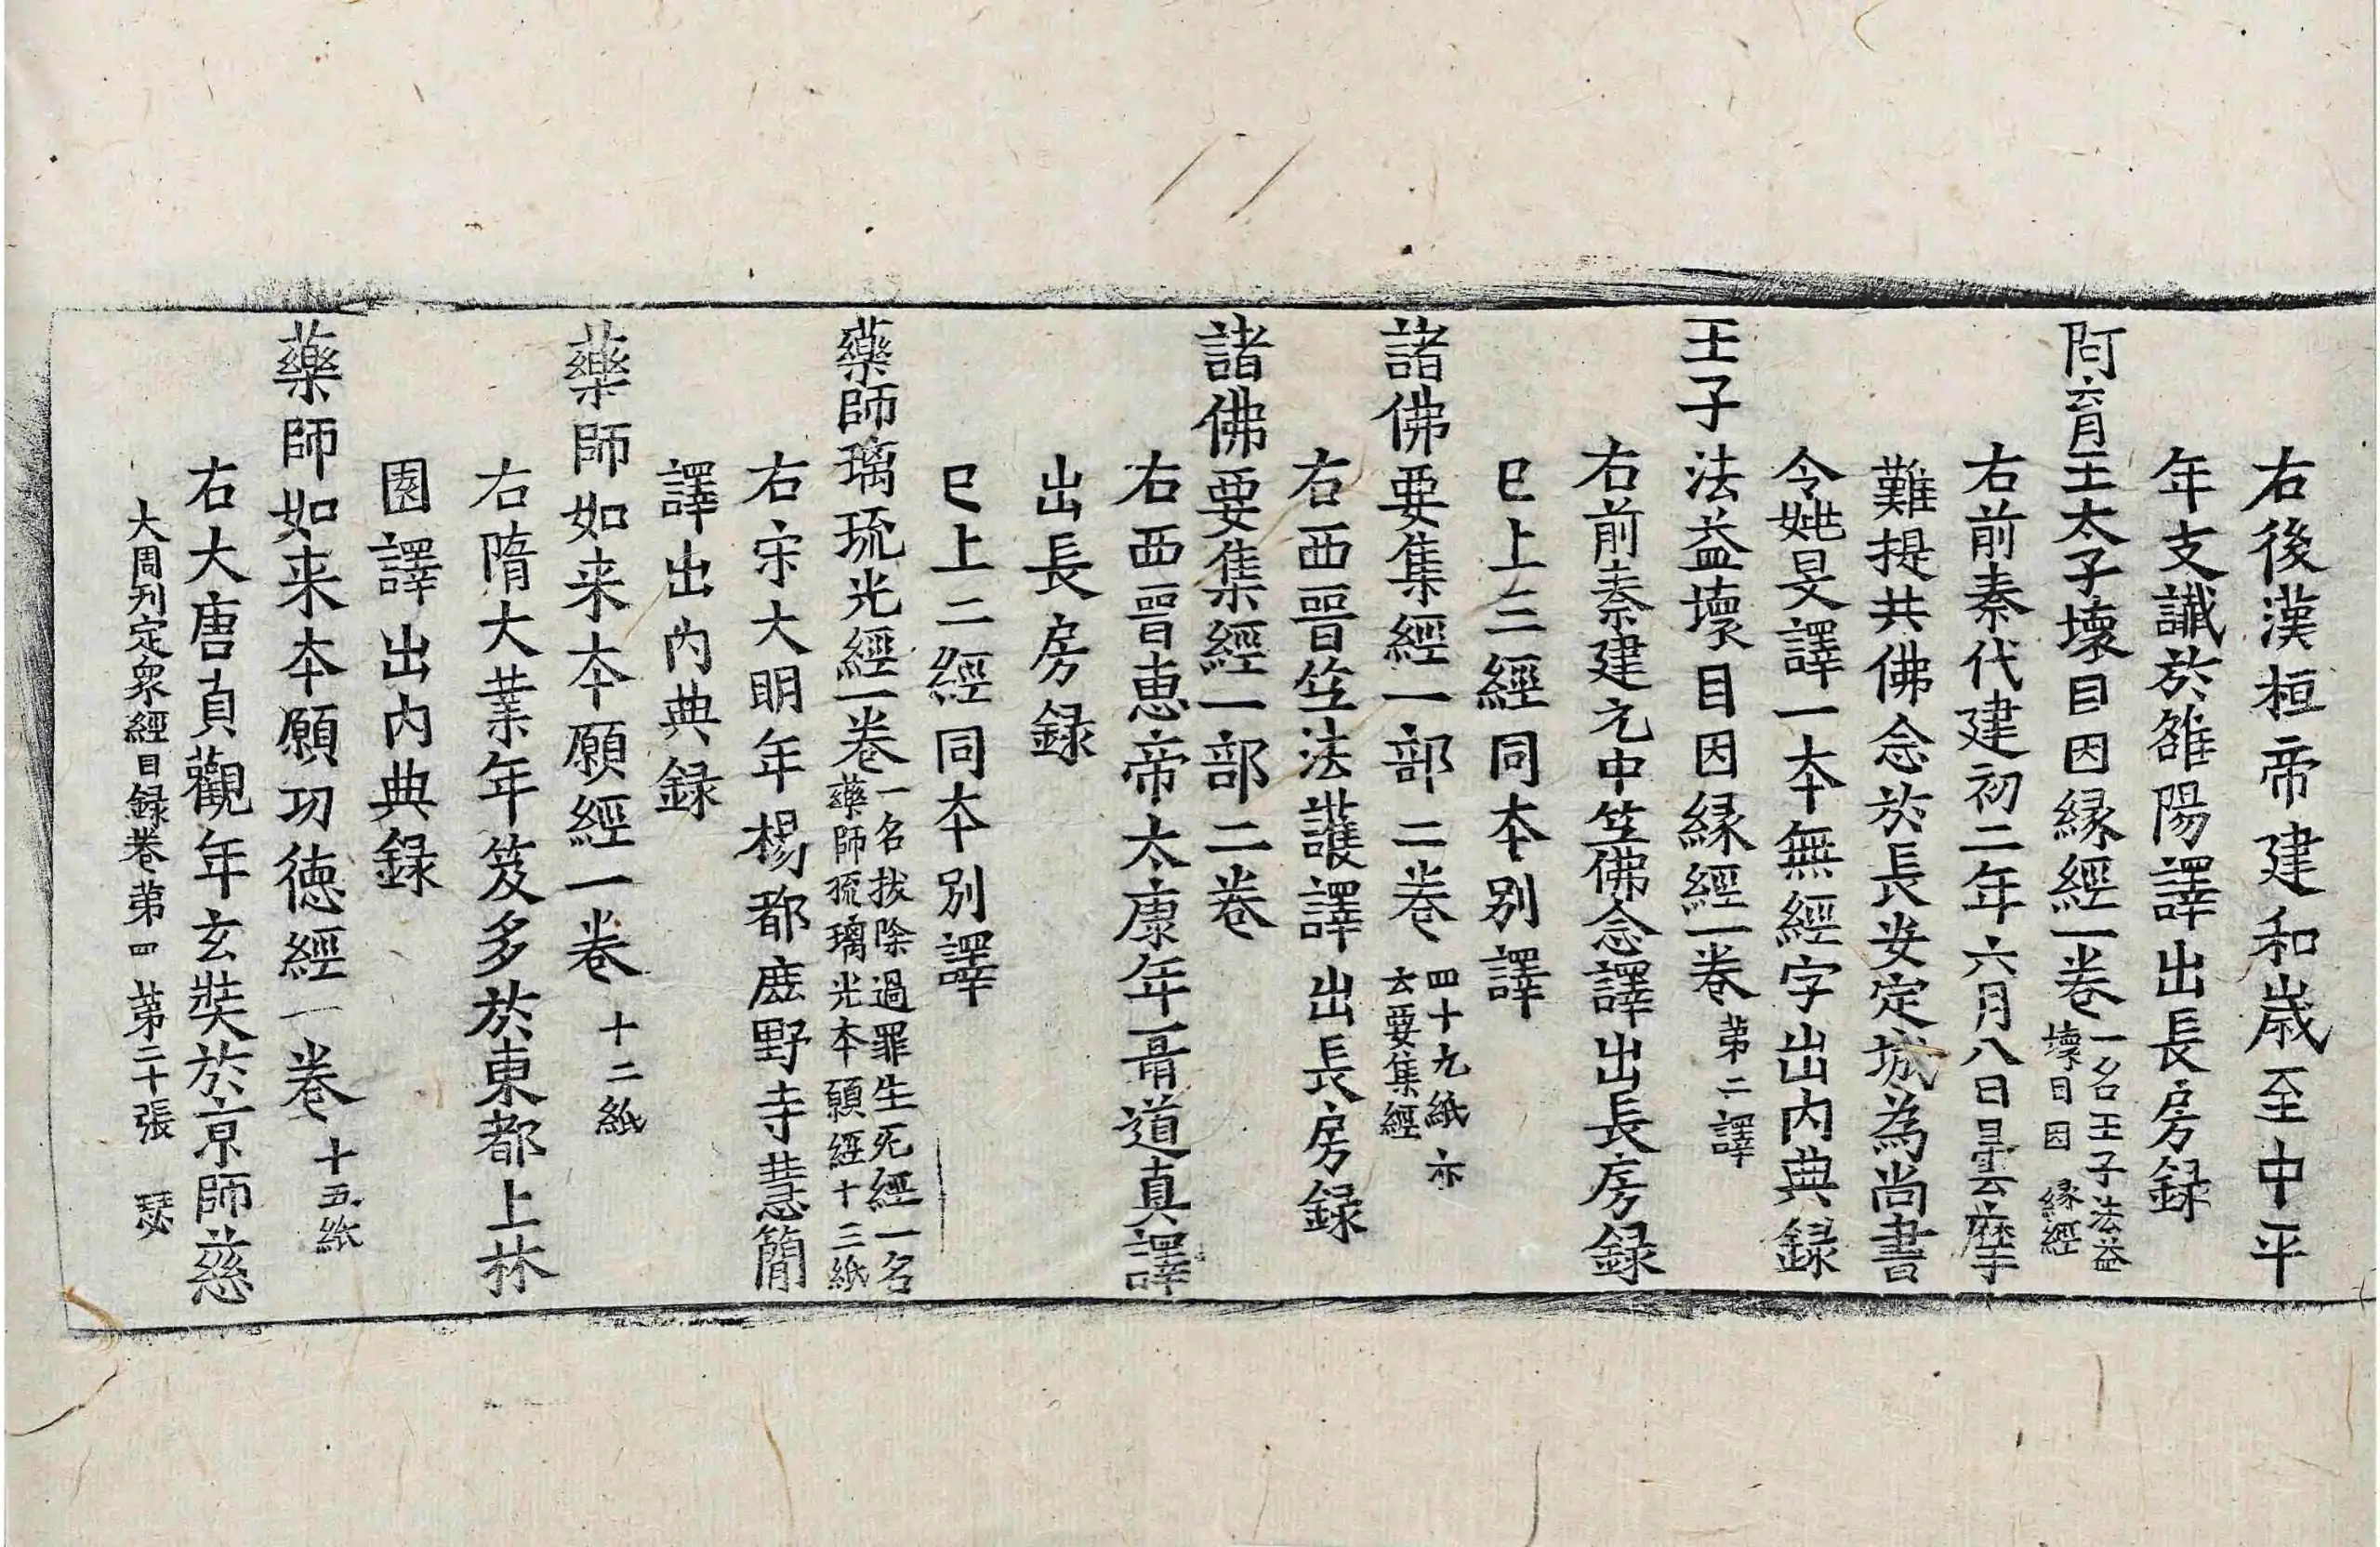 右後漢桓帝建和歲至中平
年支讖於雒陽譯出長房録
阿育王太子壞目因縁經一卷一名王子法益壞目因縁經
右前秦代建初二年六月八日曇摩
難提共佛念於長安定城為尚書
令姚旻譯一本無經字出內典録
王子法益壞目因縁經一卷第二譯
右前秦建元中竺佛念譯出長房録
已上三經同本別譯
諸佛要集經一部二卷四十九紙亦云要集經
右西晉竺法護譯出長房録
諸佛要集經一部二卷
右西晉惠帝太康年聶道真譯
出長房録
已上二經同本別譯
藥師璃琉光經一卷一名拔除過罪生死經一名藥師琉璃光本願經十三紙
右宋大明年楊都鹿野寺慧簡
譯出內典録
藥師如来本願經一卷十二紙
右隋大業年笈多於東都上林
園譯出內典録
藥師如来本願功德經一卷十五紙
右大唐貞觀年玄奘於京師慈
大周刋定衆經目録卷第四 第二十張 瑟